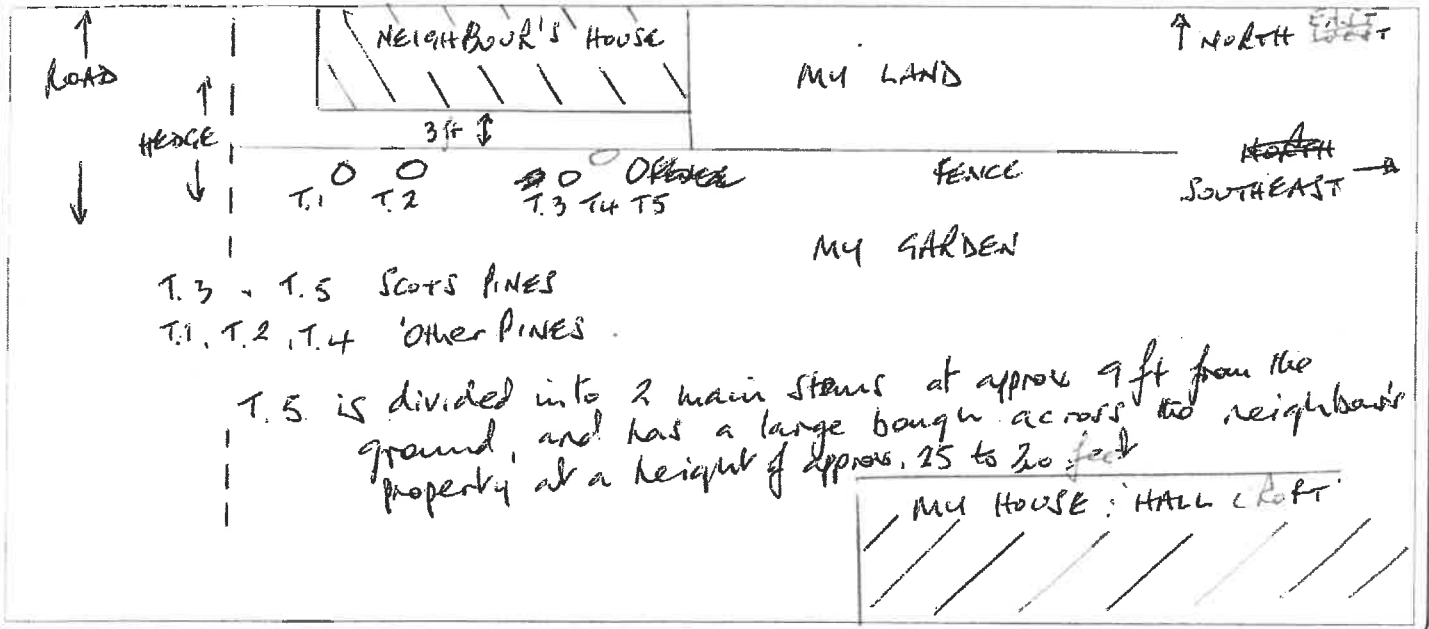 ROAD
NEIGHBOUR'S HOUSE
MY LAND
NORTH
HEDGE
3ft
FENCE
SOUTHEAST
T.1 T.2 T.3 T4 T5
MY GARDEN
T.3 T.5 SCOTS PINES
T.1, T.2, T.4 'Other PINES
T.5 is divided into 2 main stems at approx 9 ft from the
ground, and has a large bough across the neighbour's
property at a height of approx. to feet
MY HOUSE: 'HALL CROFT'